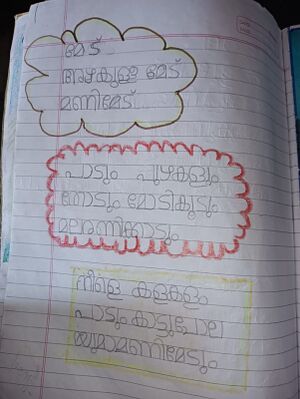 മേട്
അഴകുള്ള മേട്
മണിമേട്
പാടും പുഴകളും
തോടും മോടികൂടും
മലരണിക്കാടും
നീളെ കളകളം
പാടും കാട്ടുചോല
യുമാമണിമേടും